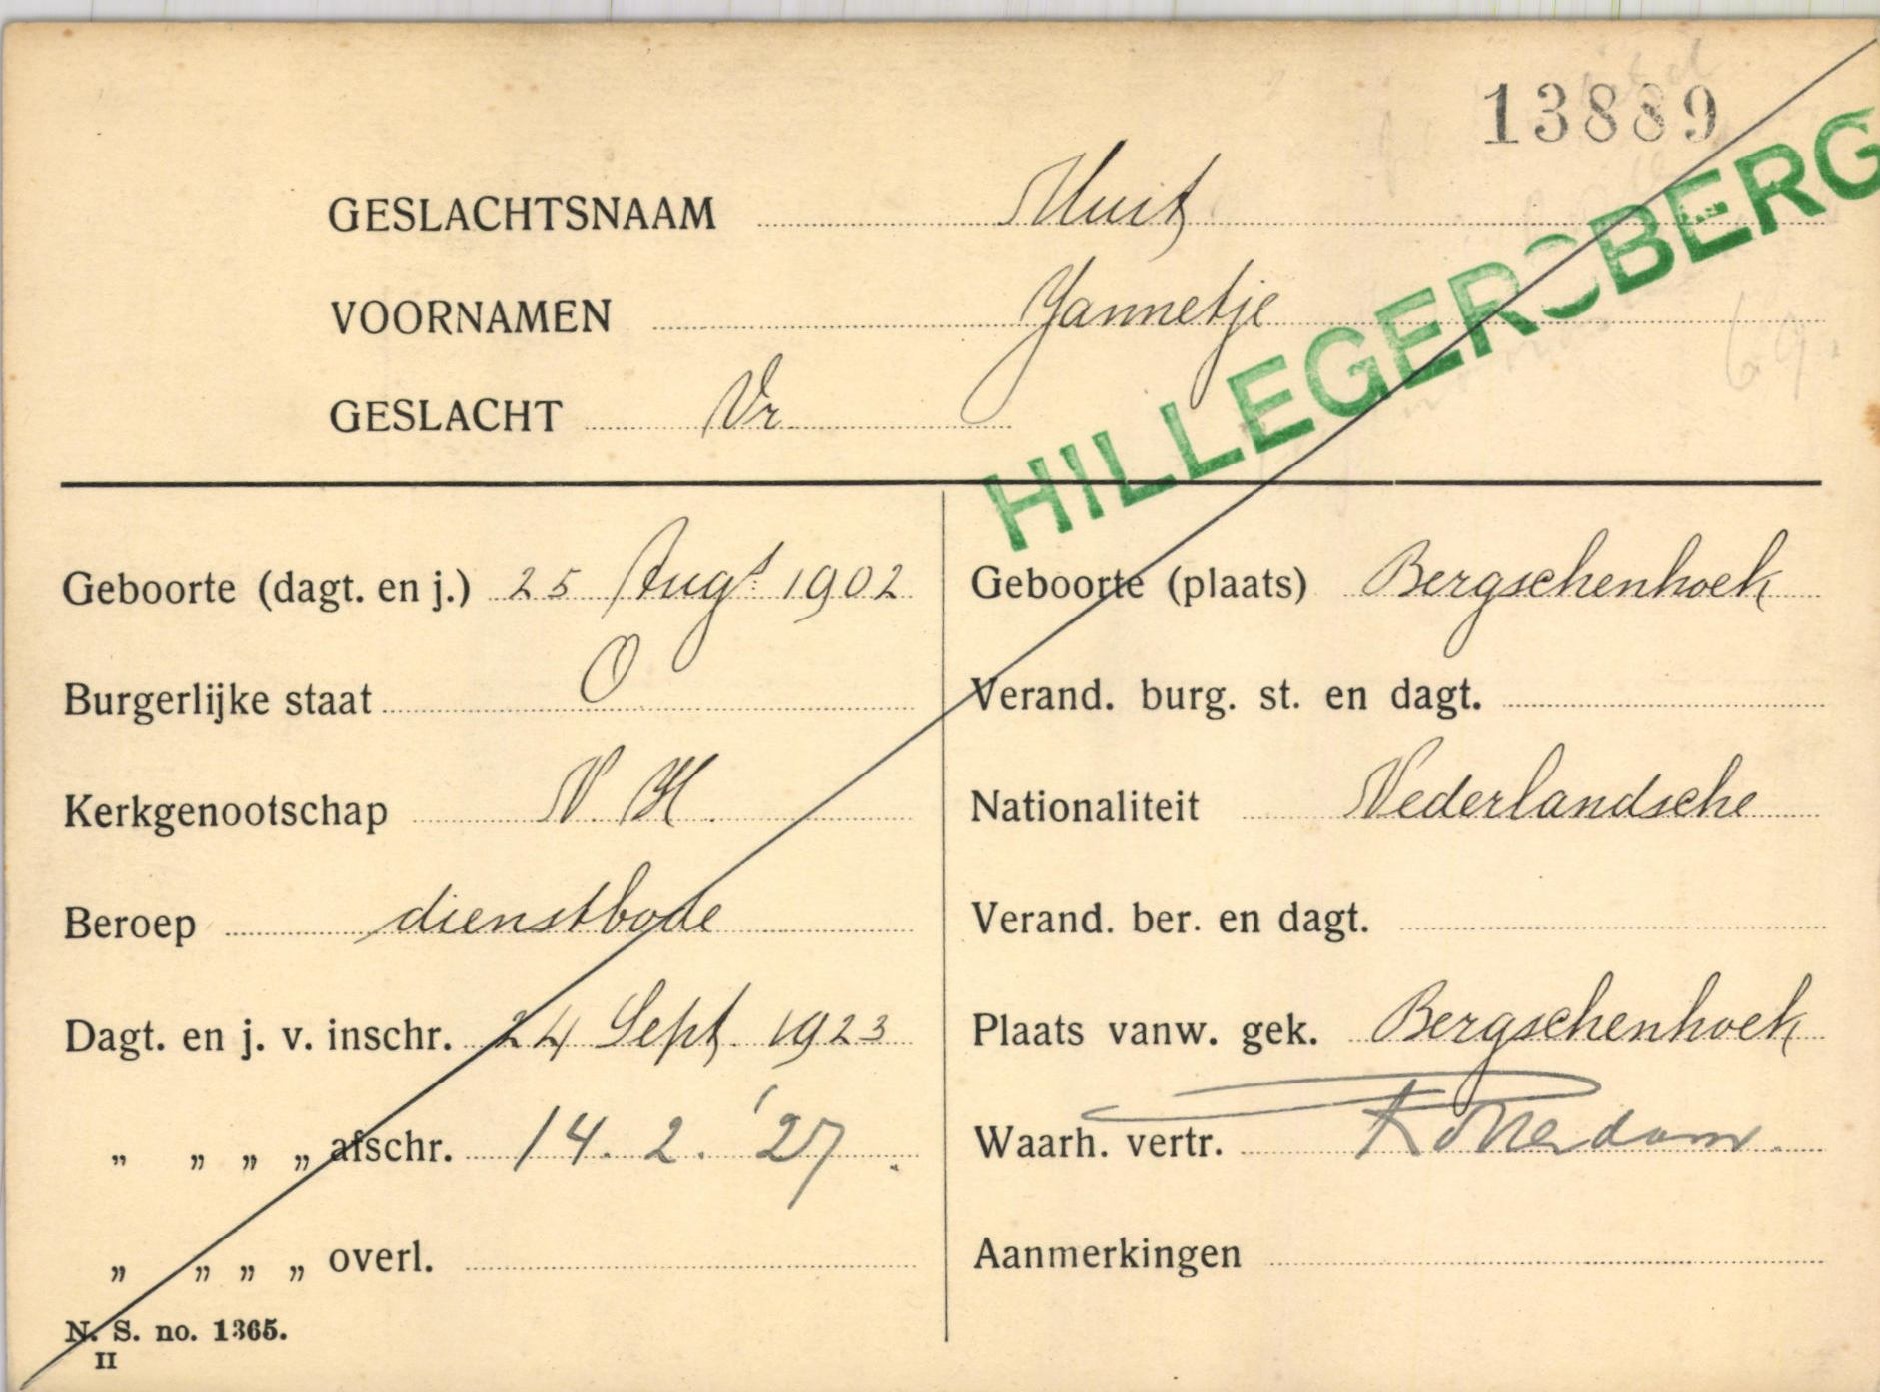 13889
GESLACHTSNAAM Muit
VOORNAMEN Jannetje
GESLACHT Vr
HILLEGERSBERG
Geboorte (dagt. en j.) 25 Augt 1902
Geboorte (plaats) Bergschenhoek
Burgerlijke staat O
Verand. burg. st. en dagt.
Kerkgenootschap N. H.
Nationaliteit Nederlandsche
Beroep dienstbode
Verand. ber. en dagt.
Dagt. en j. v. inschr. 24 Sept. 1923
Plaats vanw. gek. Bergschenhoek
„ „ „ „ afschr. 14. 2. '27.
Waarh. vertr. Rotterdam.
„ „ „ „ overl.
Aanmerkingen
N. S. no. 1365.
II